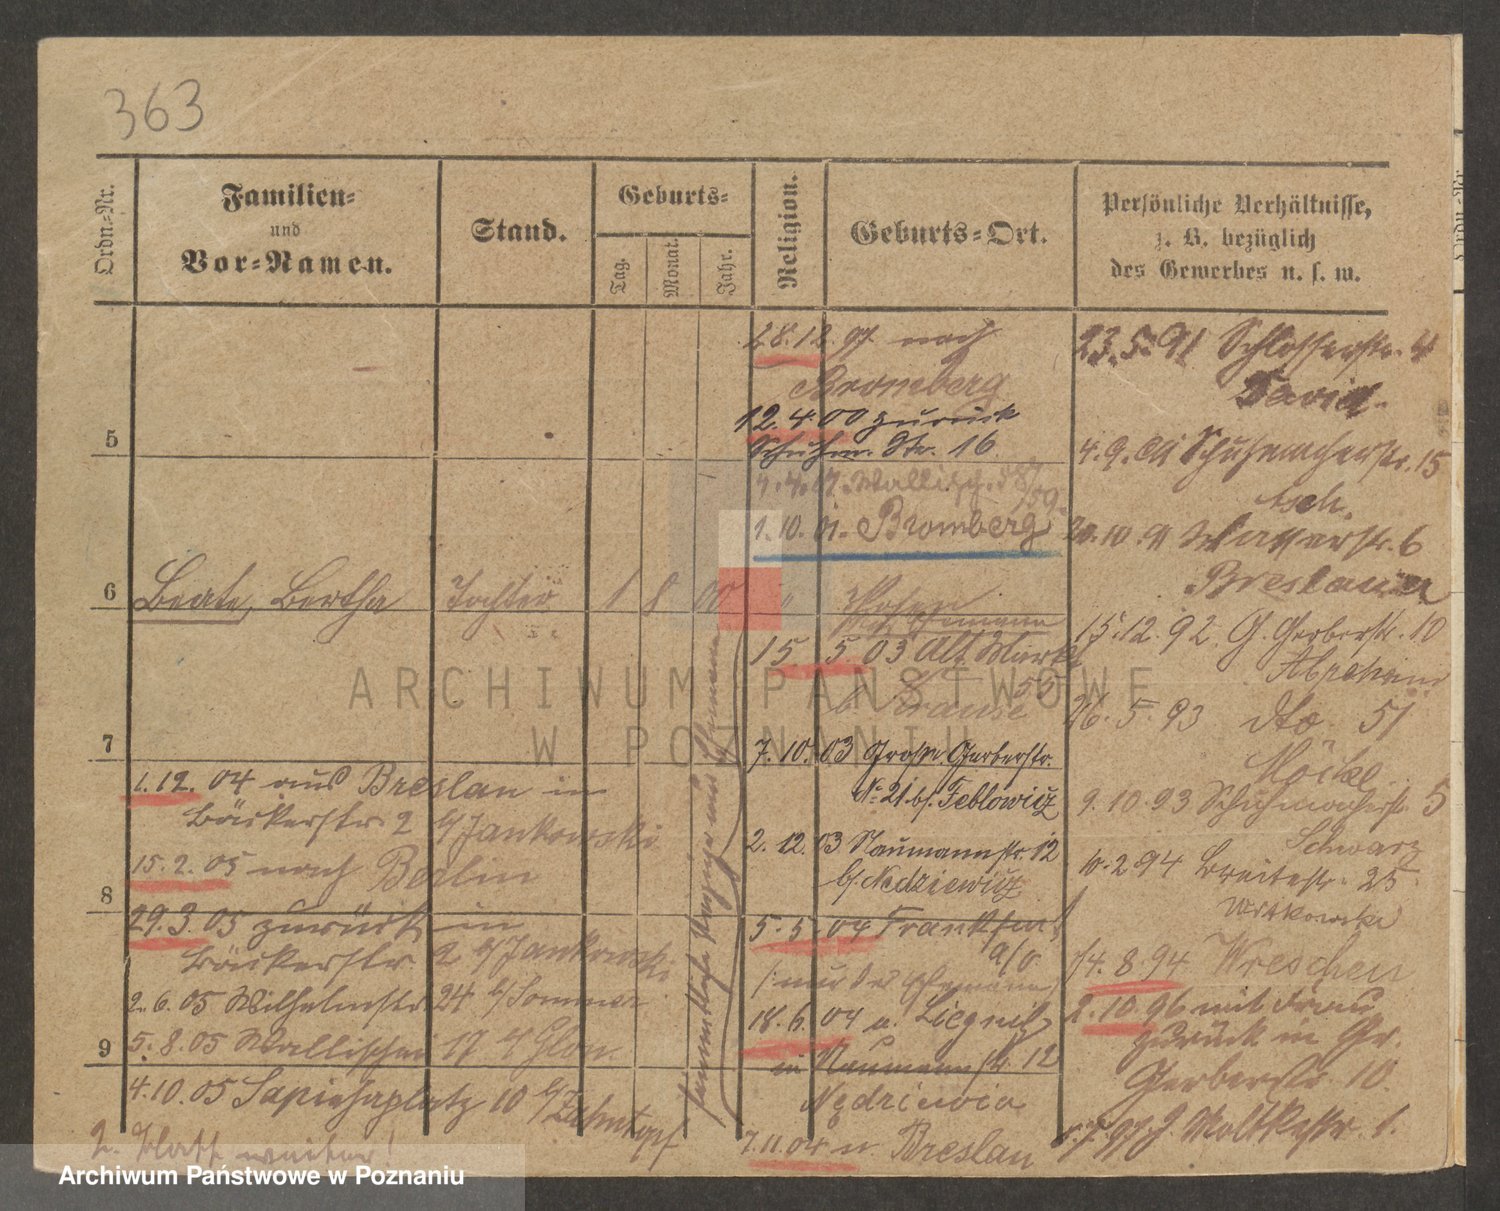 363
Ordn.-Nr.
Familien-
und
Vor-Namen.
Stand.
Geburts-
Tag.
Monat.
Jahr.
Religion.
Geburts-Ort.
Persönliche Verhältnisse,
z. B. bezüglich
des Gewerbes u. s. w.
5
6
Beate, Bertha Tochter 1 8 00 " Posen
7
1.12.04 aus Breslau in
Bäckerstr. 2 b/ Jankowski
15.2.05 nach Berlin
8
29.3.05 zurück in
Bäckerstr. 2 b/ Jankowski
2.6.05 Wilhelmstr. 24 b/ Sommer
9
5.8.05 Wallischei 17 b/
4.10.05 Sapiehaplatz 10 b/ Zehntopf
2. Blatt weiter!
28.12.97 nach
Bromberg
12.4.00 zurück
Schuhm. Str. 16
1.10.01. Bromberg
Ehemann
15 5. 03 Alt. Markt
55
b/ Krause
7.10.03 Große Gerberstr.
No 21 b/.
2.12.03 Naumannstr. 12
b/. Nedziewicz
5.5.04 Frankfurt
a/o
(nur der Ehemann)
18.6.04 v. Liegnitz
in Naumannstr. 12
7.11.04 n. Breslau
23.5.91 Schlosserstr. 4
David.
4.9.91 Schuhmacherstr. 15
Asch.
Wasserstr. 6
Breslauer
15.12.92 G. Gerberstr. 10
26.5.93 dto. 51
9.10.93 Schuhmacherstr. 5
Schwarz
10.2.94 Breitestr. 25
Witkowski
14.8.94 Wreschen
2.10.96 mit Frau
zurück in Gr.
Gerberstr. 10.
Moltkestr. 1.
ARCHIWUM PAŃSTWOWE
W POZNANIU
Archiwum Państwowe w Poznaniu